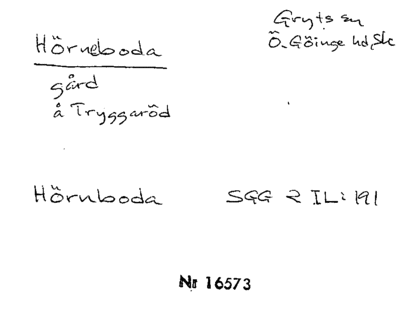 Hörneboda
Gryts sn
Ö. Göinge hd, Sk
gård
å Tryggaröd
Hörnboda SGG 2 IL: 191
Nr 16573